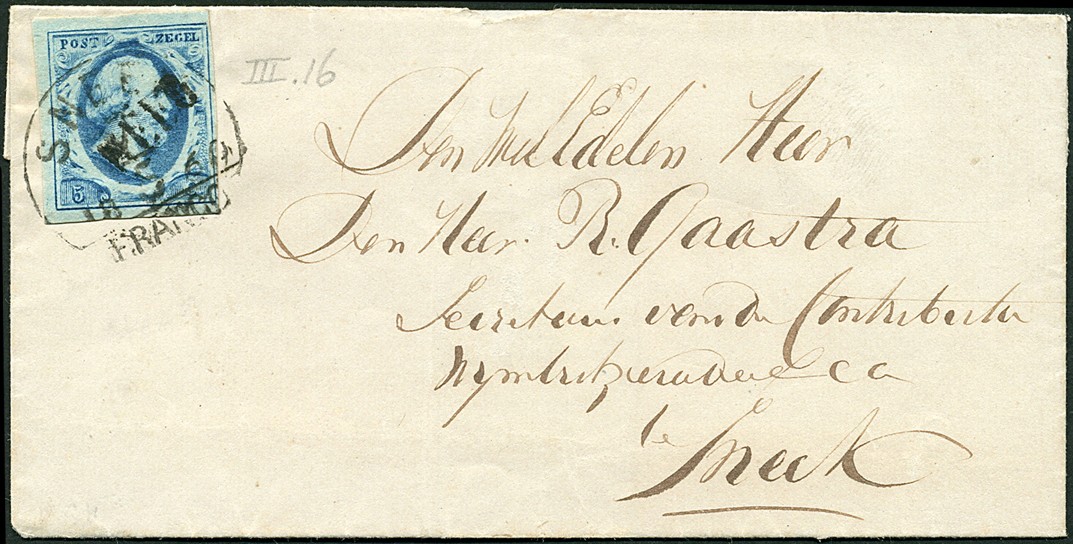 POST ZEGEL
III.16
SNEEK
5
18
FRANCO
Den WelEdelen Heer
Den Heer R. Gaastra
Secretaris van de Contributie
Wymbritseradeel c a
te Sneek